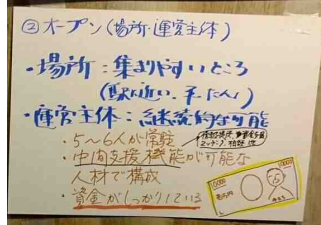 ②オープン(場所・運営主体)
・場所:集まりやすいところ
(駅近い、平たん)
・運営主体:継続的な可能
・5~6人が常駐
・中間支援機能が可能な
人材で構成
・資金がしっかりしている
10000
10000